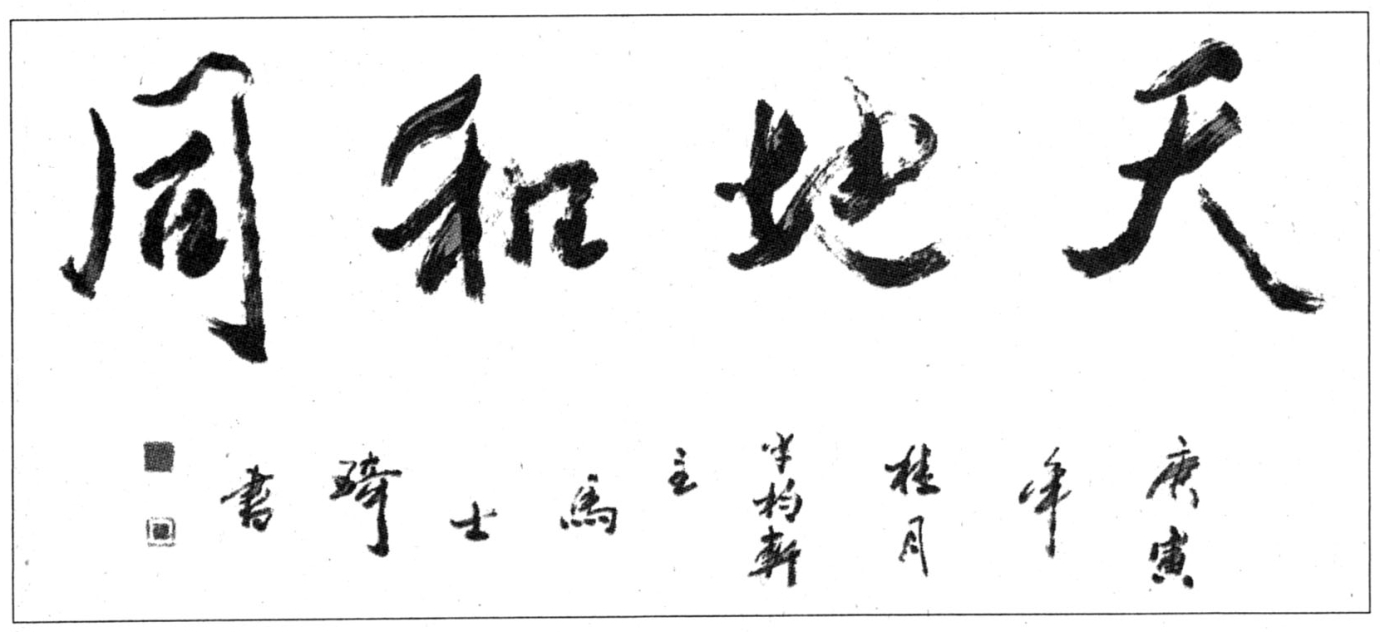 天地和同
庚寅年桂月半杓軒主馬士琦書